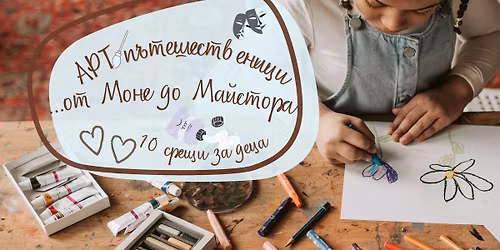 АРТ пътешественици
...от Моне до Майстора
10 срещи за деца